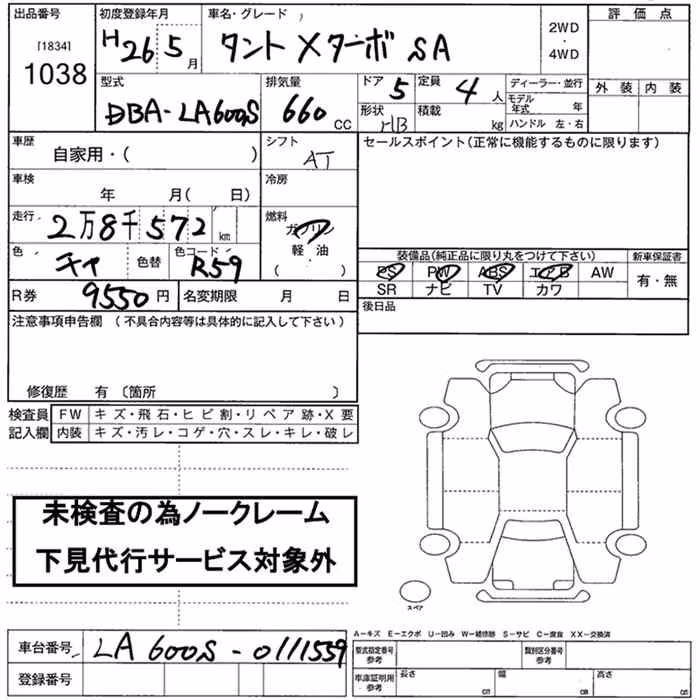 出品番号
[1834]
1038
初度登録年月
H26 5月
車名・グレード
タント Xターボ SA
2WD
・
4WD
評価点
外装 内装
型式
DBA-LA600S
排気量
660 CC
ドア 5
定員 4人
形状 HB
積載 kg
ディーラー・並行
モデル年式 年
ハンドル 左・右
車歴
自家用・( )
シフト
AT
車検
年 月( 日)
冷房
走行
2万8千572 km
燃料
ガソリン
・
軽油
( )
色 チャ
色替
色コード R59
R券 9550円
名変期限 月 日
セールスポイント(正常に機能するものに限ります)
装備品(純正品に限り丸をつけて下さい)
PS PW ABS エアB AW
SR ナビ TV カワ
新車保証書
有・無
後日品
注意事項申告欄 (不具合内容等は具体的に記入して下さい)
修復歴 有 〔箇所 〕
検査員記入欄
FW キズ・飛石・ヒビ割・リペア跡・X要
内装 キズ・汚レ・コゲ・穴・スレ・キレ・破レ
未検査の為ノークレーム
下見代行サービス対象外
スペア
車台番号 LA600S-0111559
登録番号
A－キズ E－エクボ U－凹み W－補修跡 S－サビ C－腐食 XX－交換済
型式指定番号
参考
類別区分番号
車庫証明用
参考
長さ cm
幅 cm
高さ cm